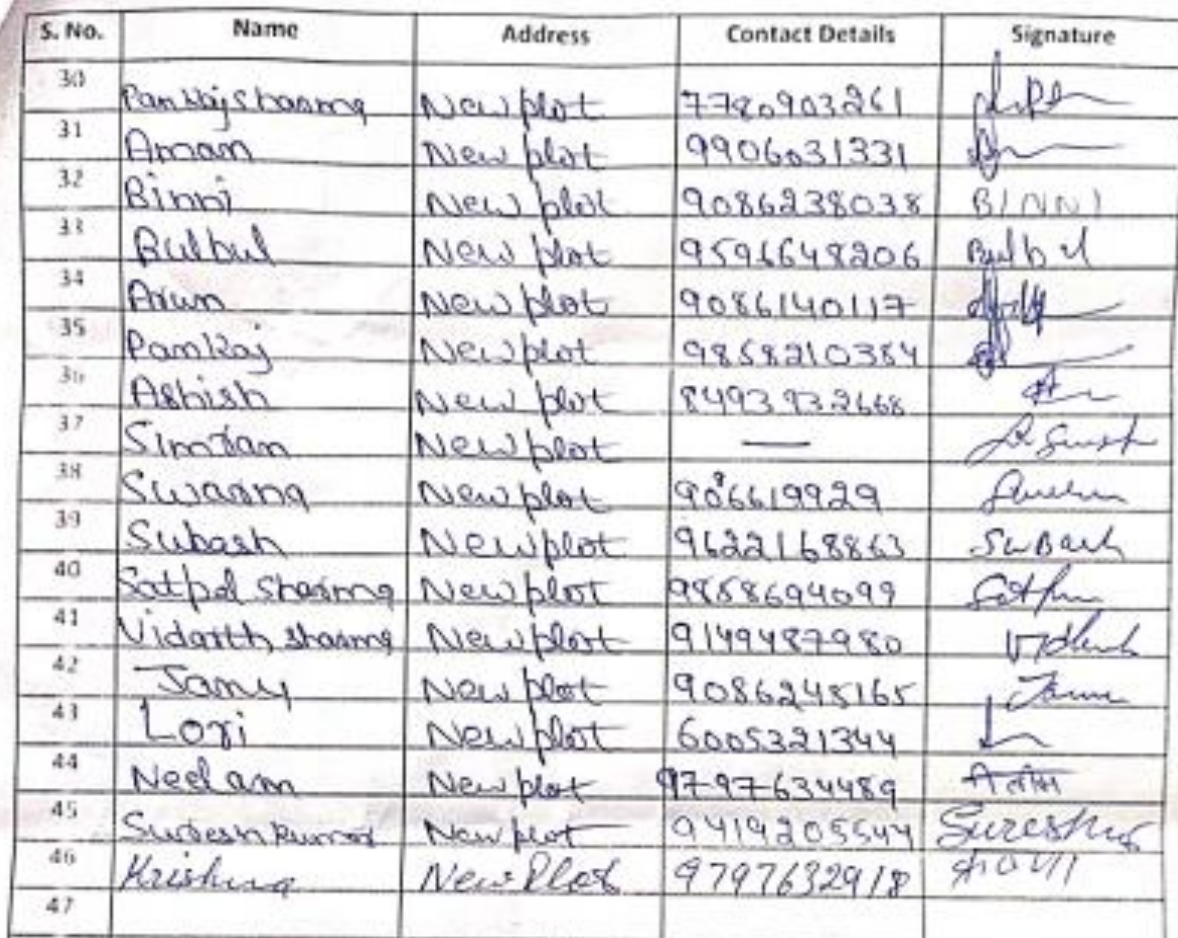 S. No. Name Address Contact Details Signature
30 Pankaj sharma New plot 7780903261
31 Aman New plot 9906031331
32 Binni New plot 9086238038 BINNI
33 Bulbul New plot 9596648206 Bulbul
34 Arun New plot 9086140117
35 Pankaj New plot 9858210384
36 Ashish New plot 8493932668
37 Simran New plot —
38 Swarna New plot
39 Subash New plot 9622168863 SuBash
40 Satpal sharma New plot 9858694099
41 Vidarth sharma New plot 9149487980
42 Jany New plot 9086245165
43 Lori New plot 6005321344
44 Neelam New plot 9797634489
45 Suresh kumar New plot 9419205544
46 Krishna New Plot 9797632918
47